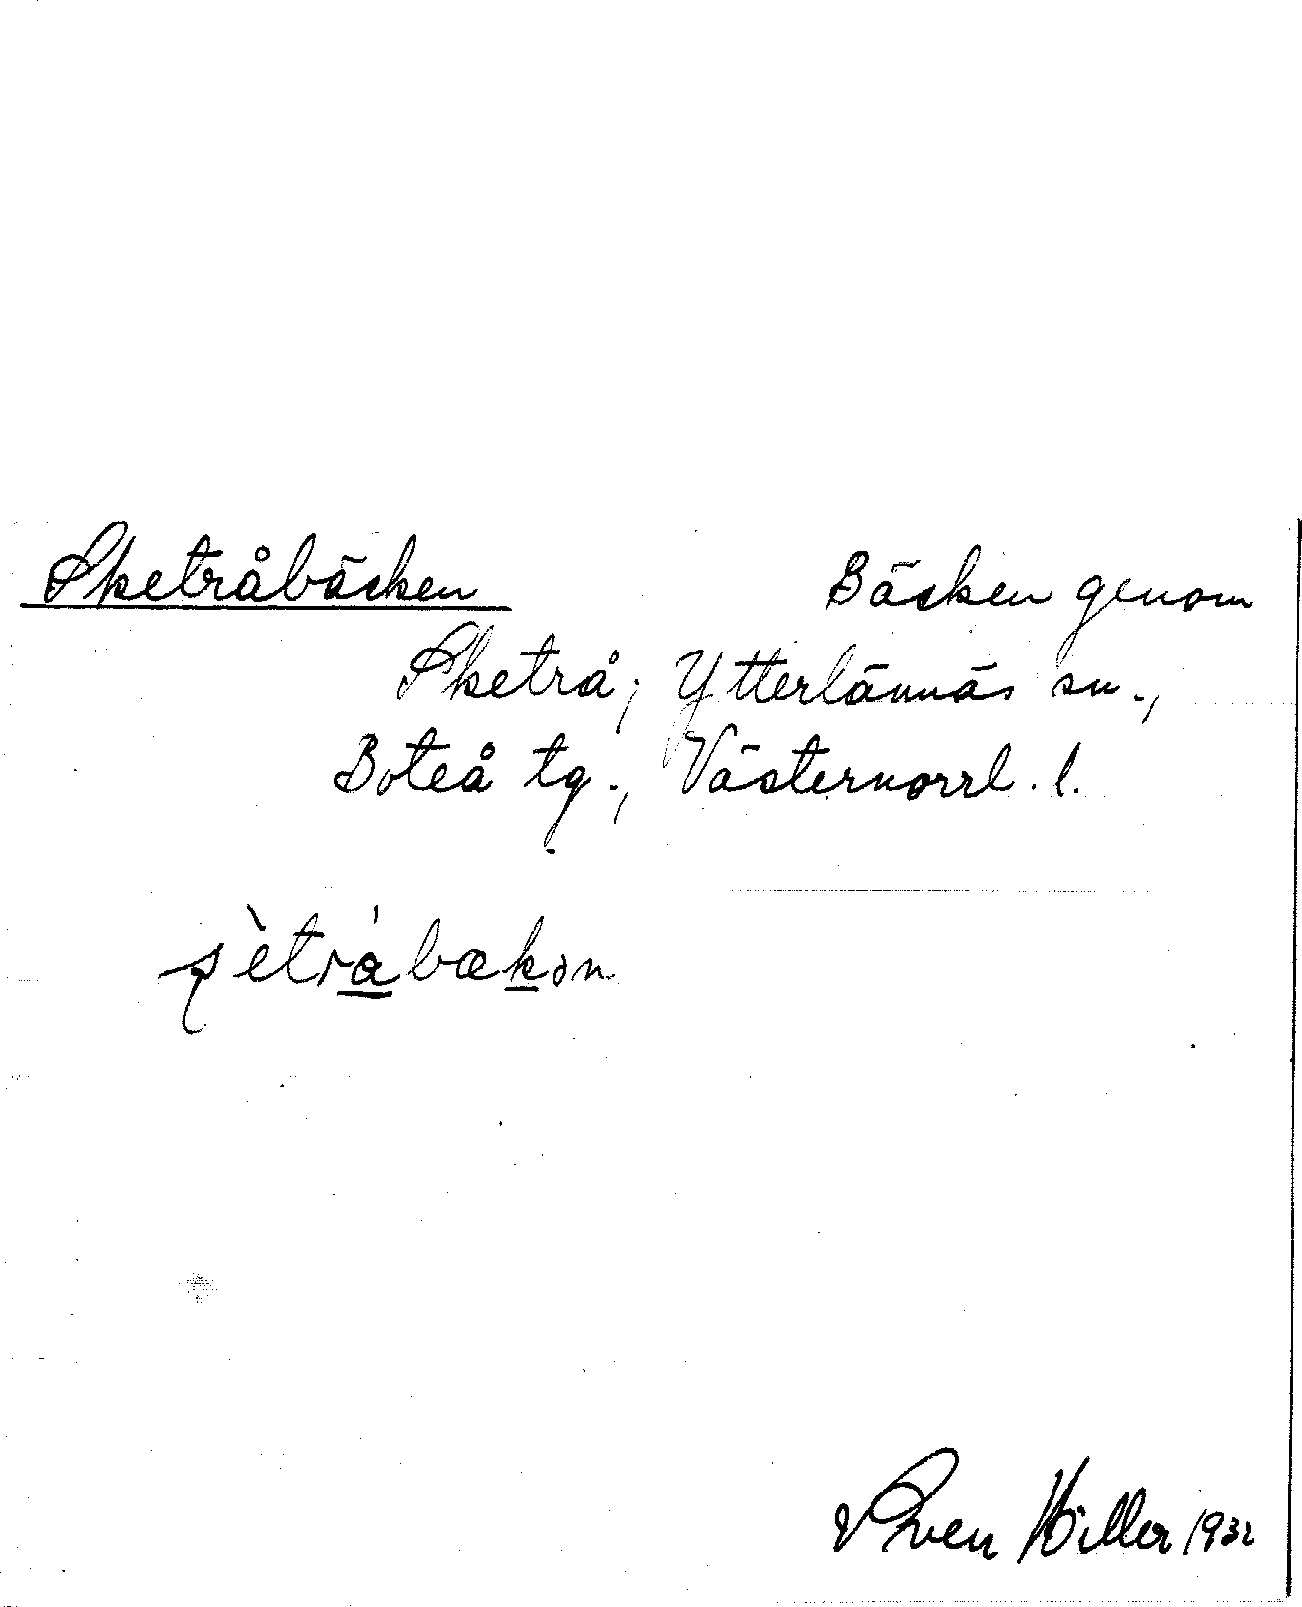 Sketråbäcken Bäcken genom
Sketrå, Ytterlännäs sn.,
Boteå tg., Västernorrl. l.
Sven Hiller 1932